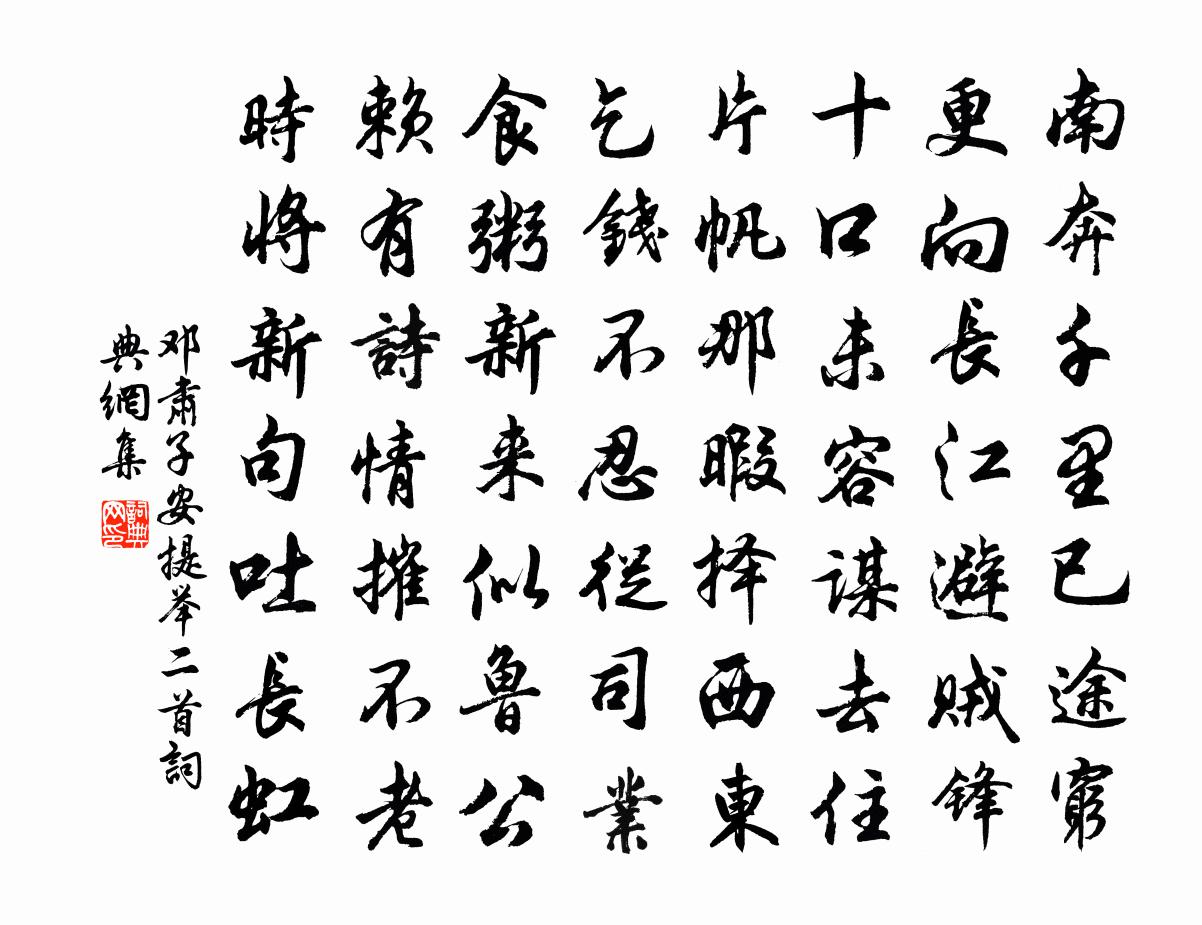 南奔千里已途窮
更向長江避賊鋒
十口未容謀去住
片帆那暇择西東
乞錢不忍從司業
食粥新来似魯公
赖有詩情摧不老
時將新句吐長虹
邓肅子安提举二首詞
典網集
詞典
网印